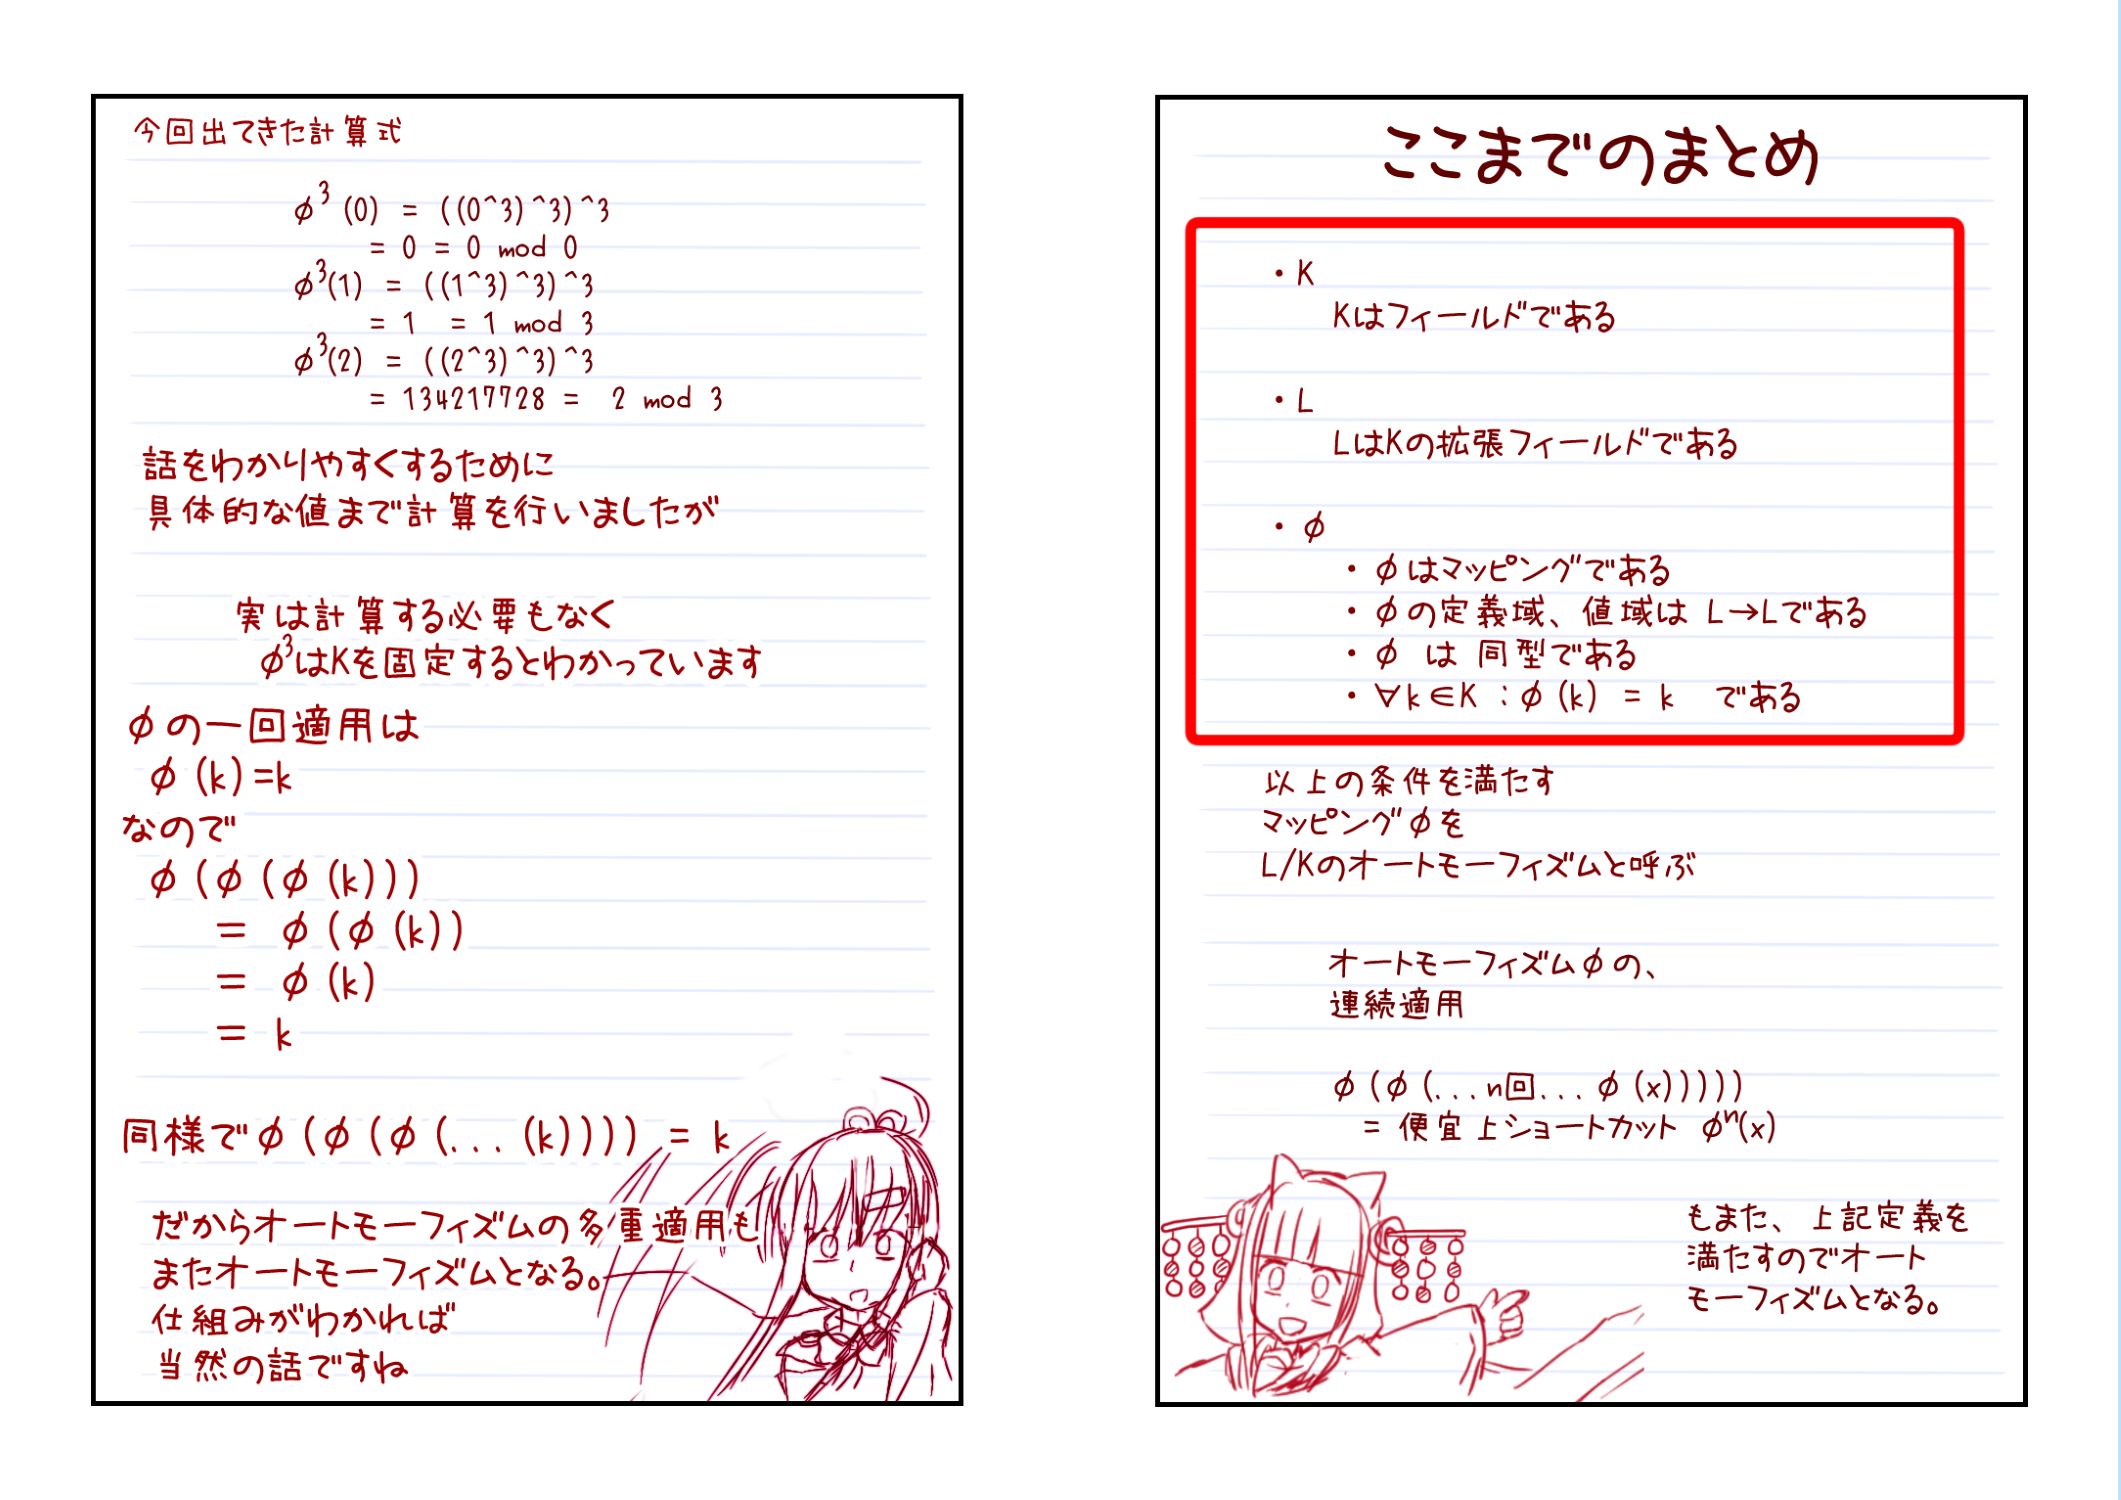 今回出てきた計算式
φ³(0) = ((0^3)^3)^3
= 0 = 0 mod 0
φ³(1) = ((1^3)^3)^3
= 1 = 1 mod 3
φ³(2) = ((2^3)^3)^3
= 134217728 = 2 mod 3
話をわかりやすくするために
具体的な値まで計算を行いましたが
実は計算する必要もなく
φ³はKを固定するとわかっています
φの一回適用は
φ(k)=k
なので
φ(φ(φ(k)))
= φ(φ(k))
= φ(k)
= k
同様でφ(φ(φ(...(k)))) = k
だからオートモーフィズムの多重適用も
またオートモーフィズムとなる。
仕組みがわかれば
当然の話ですね
ここまでのまとめ
・K
Kはフィールドである
・L
LはKの拡張フィールドである
・φ
・φはマッピングである
・φの定義域、値域は L→Lである
・φ は 同型である
・∀k∈K:φ(k) = k である
以上の条件を満たす
マッピングφを
L/Kのオートモーフィズムと呼ぶ
オートモーフィズムφの、
連続適用
φ(φ(...n回...φ(x)))))
= 便宜上ショートカット φⁿ(x)
もまた、上記定義を
満たすのでオート
モーフィズムとなる。